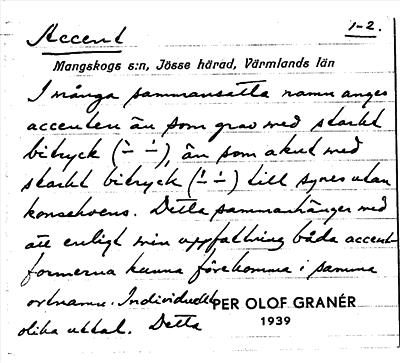 Accent
1-2.
Mangskogs s:n, Jösse härad, Värmlands län
I många sammansatta namn anges
accenten än som grav med starkt
bitryck (`- ´-), än som akut med
starkt bitryck (´- `-) till synes utan
konsekvens. Detta sammanhänger med
att enligt min uppfattning båda accent-
formerna kunna förekomma i samma
ortnamn. Individuellt
olika uttal. Detta
PER OLOF GRANÉR
1939